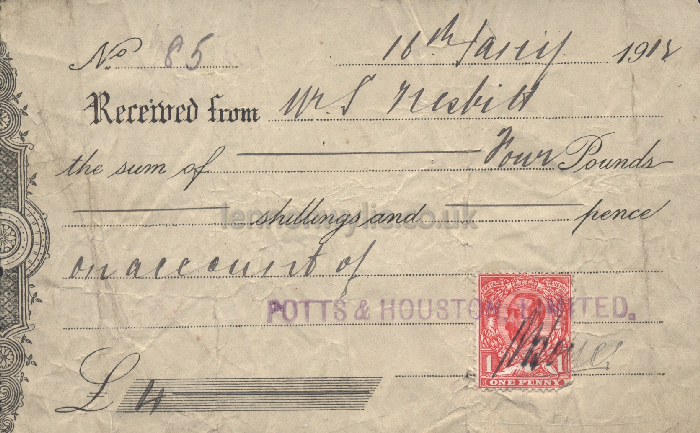 No 85 16th Jany 1912
Received from Mr S Nesbitt
the sum of Four Pounds
shillings and pence
on account of
POTTS & HOUSTON, LIMITED.
£ 4
1 1
ONE PENNY